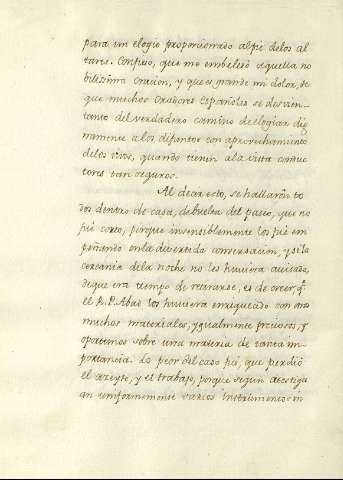 para un elogio proporcionado alpie delos al
tares. Confieso, que me embelesó aquella no
bilissima oracion, y que es grande mi dolor, de
que muchos oradores Españoles se desvien
tanto del verdadero camino de elogiar dig
namente a los difuntos con aprovechamiento
delos vivos, quando tienen ala vista conduc
tores tan seguros.
Al decir esto, se hallaron to
dos dentro de casa, debuelta del paseo, que no
fue corto, porque insensiblemente los fue em
peñando enla divertida conversacion, y si la
cercania dela noche no les huviera avisado,
deque era tiempo de retirarse, es de creer, q.e
el R. P. Abad los huviera enriquecido con otros
muchos materiales, ygualmente preciosos, y
oportunos sobre una materia de tanta im
portancia. Lo peor del caso fue, que perdio
el azeyte, y el trabajo, porque segun atestigu
an uniformemente varios Instrumentos in